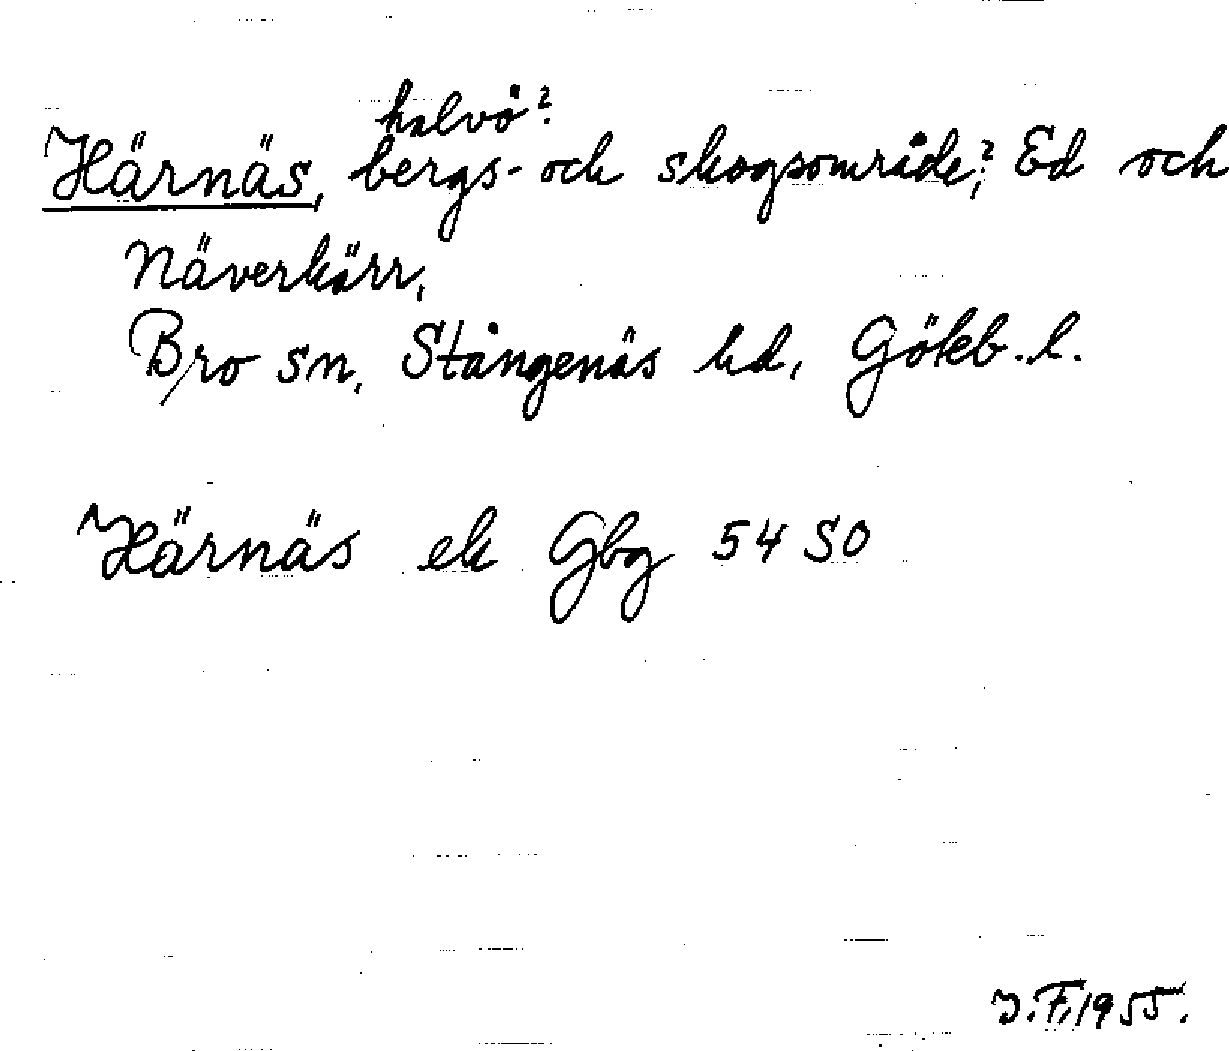 halvö?
Härnäs, bergs- och skogsområde?, Ed och
Näverkärr,
Bro sn, Stångenäs hd, Götëb. l.
Härnäs ek Gbg 54 SO
J.F. 1955.